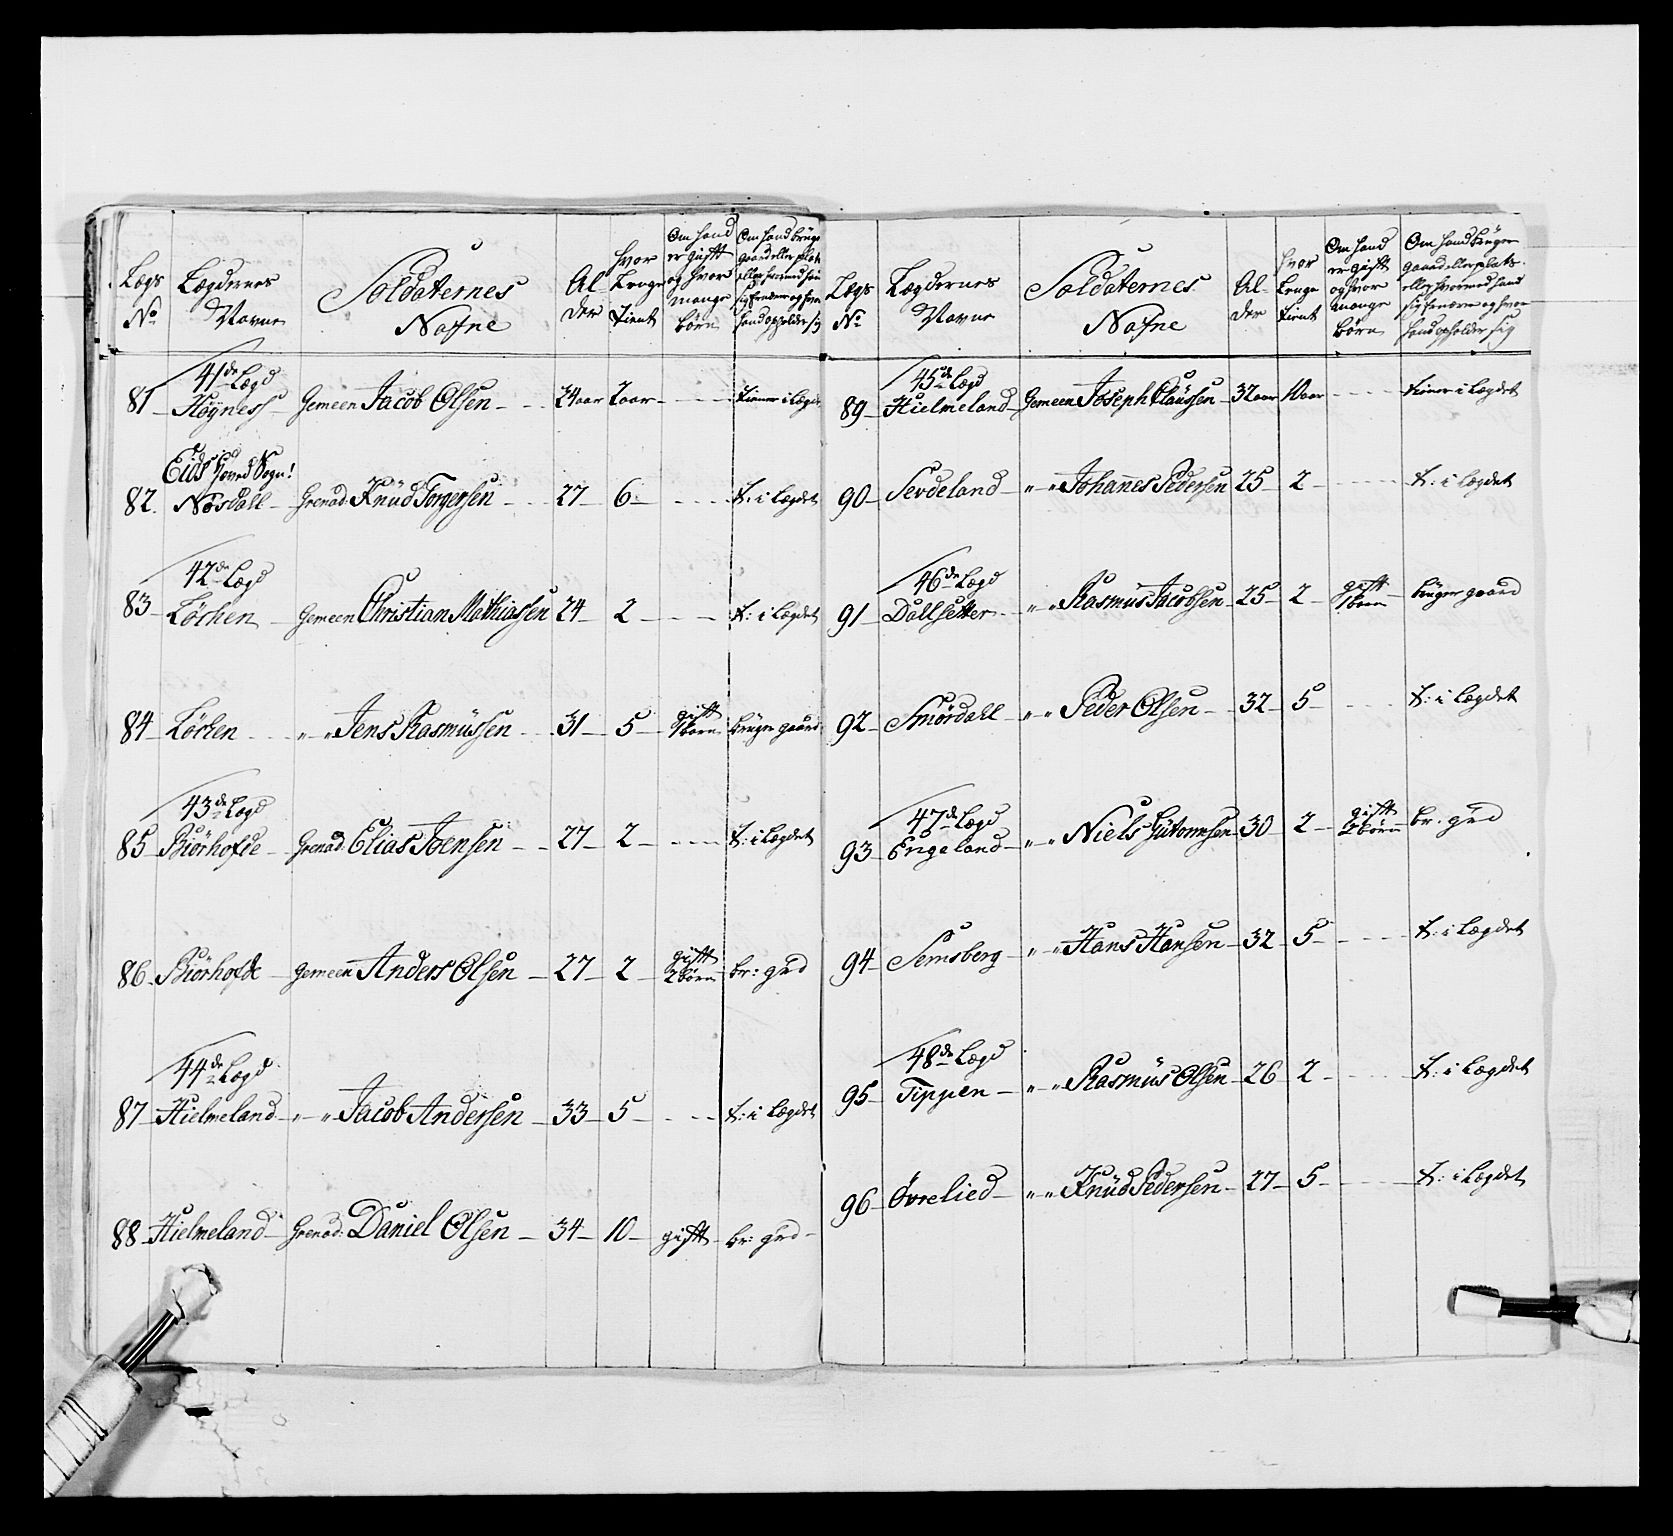 Lægs No
Lægdernes Navne
Soldaternes Nafne
Alder
Hvor Længe Tient
Om hand er gift og hvor mange børn
Om hand bruger gaard eller plads eller hvormed hand sig ernærer og hvor hand opholder sig
41de Lægd
81 Høÿness Gemeen Jacob Olsen 24 aar 2 aar tiener i Lægdet
Eids Hoved Sogn!
82 Nosdall Grenad: Knud Torgersen 27 6 t: i Lægdet
42de Lægd
83 Löchen Gemeen Christian Mathiassen 24 2 t: i Lægdet
84 Löchen " " Jens Rasmüssen 31 5 gift 1 barn brüger gaard
43de Lægd
85 Biörhofde Grenad: Elias Joensen 27 2 t: i Lægdet
86 Biörhofde gemeen Anders Olsen 27 2 gift 2 börn br: grd
44de Lægd
87 Hielmeland " " Jacob Andersen 33 5 t: i Lægdet
88 Hielmeland Grenad: Daniel Olsen 34 10 gift br: grd
Lægs No
Lægdernes Navne
Soldaternes Nafne
Alder
Hvor Længe tient
Om hand er gift og hvor mange börn
Om hand brüger gaard eller plads eller hvormed hand sig ernærer og hvor hand opholder sig
45de Lægd
89 Hielmeland Gemeen Joseph Claüssen 32 aar 10 aar tiener i Lægdet
90 Serdeland " " Johanes Pedersen 25 2 t: i Lægdet
46de Lægd
91 Dallsetter " " Rasmus Jacobsen 25 2 gift 1 barn brüger gaard
92 Smördall " " Peder Olsen 32 5 t: i Lægdet
47de Lægd
93 Engeland " " Niels Gütormsen 30 2 gift 2 börn br. grd
94 Semsberg " " Hans Hansen 32 5 t: i Lægdet
48de Lægd
95 Tippen " " Rasmüs Olsen 26 2 t: i Lægdet
96 Övrelied " " Knüd Pedersen 27 5 t: i Lægdet